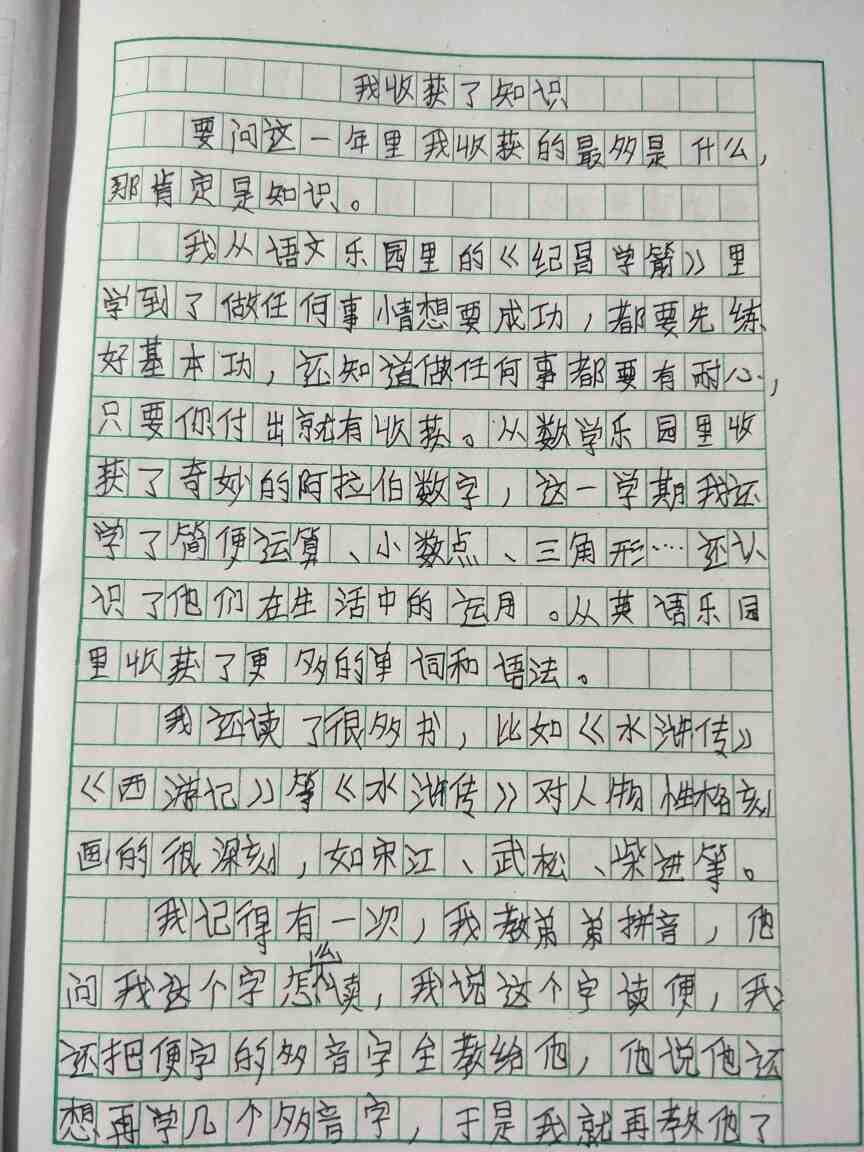 我收获了知识
要问这一年里我收获的最多是什么,
那肯定是知识。
我从语文乐园里的《纪昌学箭》里
学到了做任何事情想要成功,都要先练
好基本功,还知道做任何事都要有耐心,
只要你付出就有收获。从数学乐园里收
获了奇妙的阿拉伯数字,这一学期我还
学了简便运算、小数点、三角形…还认
识了他们在生活中的运用。从英语乐园
里收获了更多的单词和语法。
我还读了很多书,比如《水浒传》
《西游记》等《水浒传》对人物性格刻
画的很深刻,如宋江、武松、柴进等。
我记得有一次,我教弟弟拼音,他
问我这个字怎么读,我说这个字读便,我
还把便字的多音字全教给他,他说他还
想再学几个多音字,于是我就再教他了